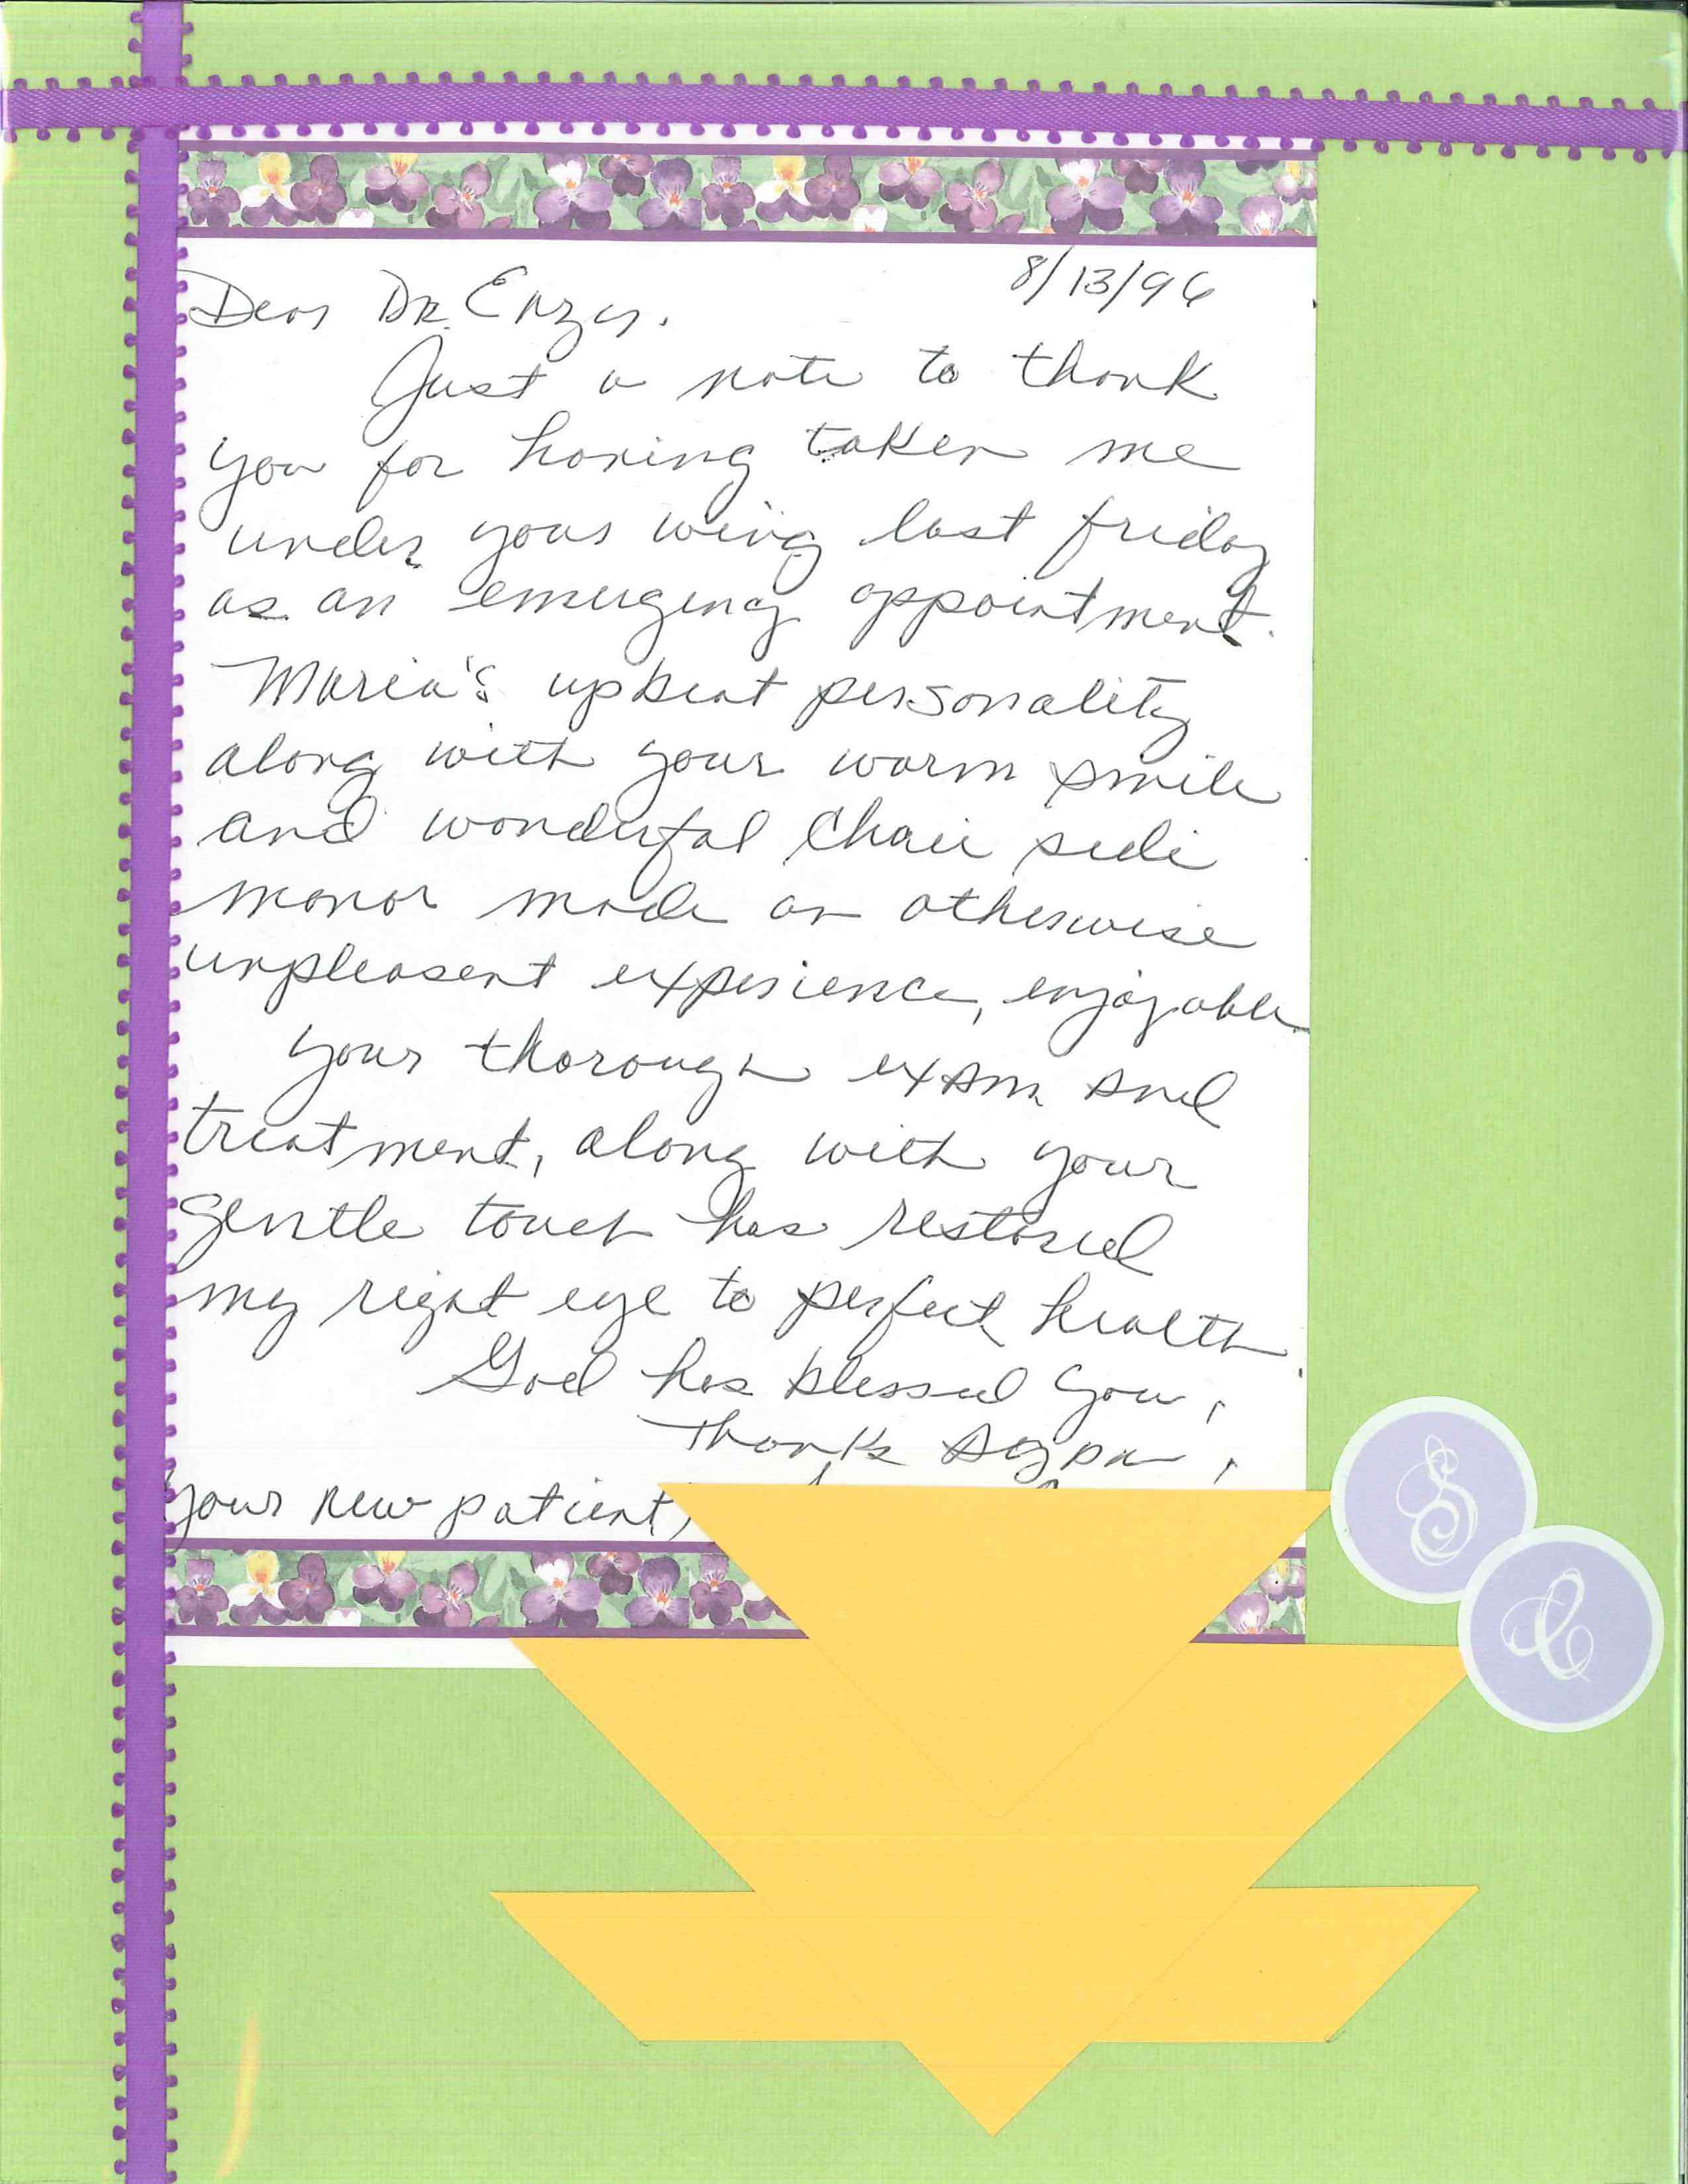 8/13/96
Dear Dr. Enzer.
Just a note to thank
you for having taken me
under your wing last friday
as an emergency appointment.
Maria's upbeat personality
along with your warm smile
and wonderful Chair side
manor made an otherwise
unpleasent experience, enjoyable
Your thorough exam and
treatment, along with your
gentle touch has restored
my right eye to perfect health.
God has blessed you,
Thanks Again,
Your new patient,
S
C